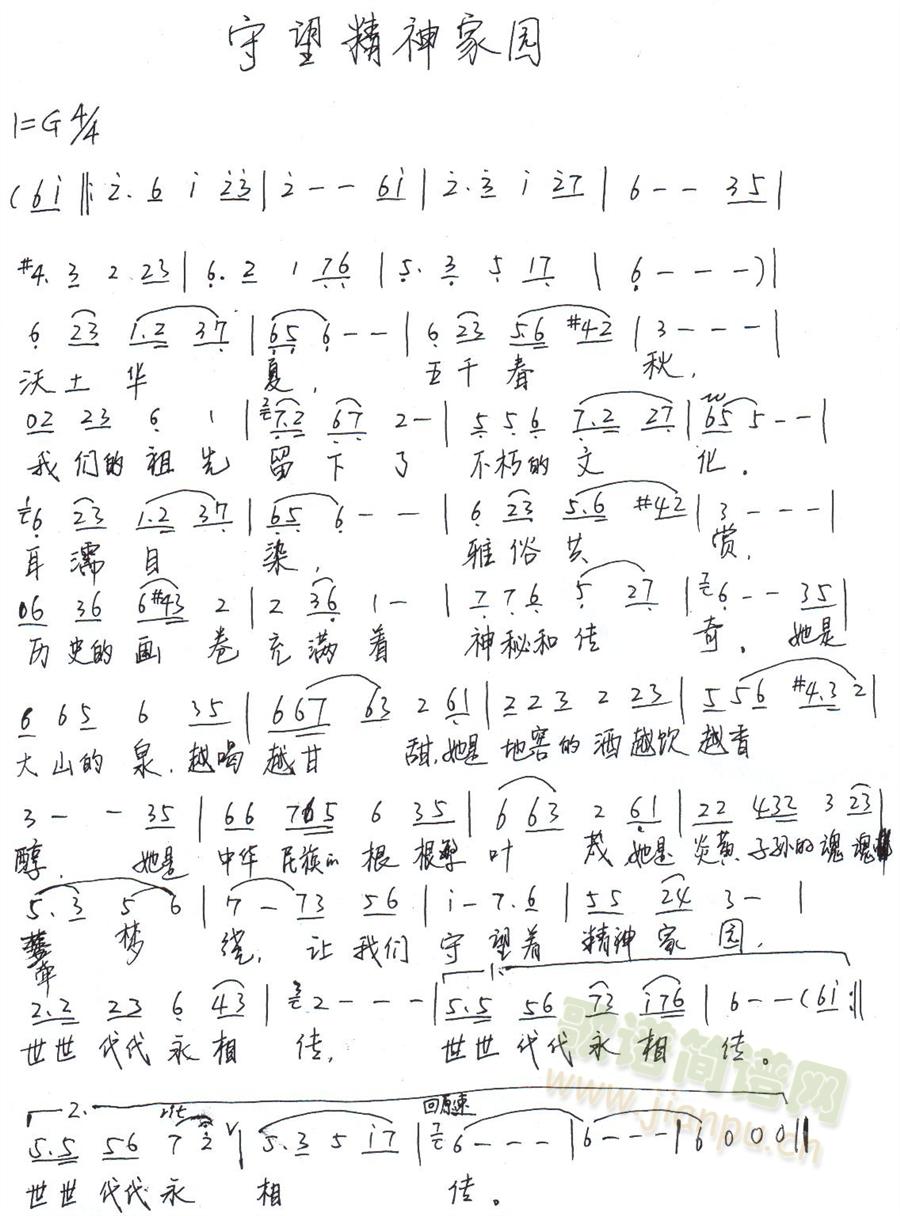 守望精神家园
1=G 4/4
(6i ‖: 2̇. 6 i 2̇3̇ | 2̇ - - 6i | 2̇. 3̇ i 2̇7 | 6 - - 35 |
#4. 3 2 23 | 6̣. 2 1 7̣6̣ | 5̣. 3̣ 5̣ 17̣ | 6̣ - - - ) |
6̣ 23 1.2 37̣ | 6̣5̣ 6̣ - - | 6̣ 23 56 #42 | 3 - - - |
沃土华 夏, 五千春 秋,
02 23 6̣ 1 | 7̣.2 6̣7̣ 2 - | 5̣ 5̣ 6̣ 7̣.2 27̣ | 6̣5̣ 5̣ - - |
我们的祖先 留下了 不朽的文 化。
6̣ 23 1.2 37̣ | 6̣5̣ 6̣ - - | 6̣ 23 5.6 #42 | 3 - - - |
耳濡目 染, 雅俗共 赏,
06 36 6#43 2 | 2 36̣ 1 - | 7̣ 7̣ 6̣ 5̣ 27̣ | 6̣ - - 35 |
历史的画卷 充满着 神秘和传 奇。她是
6 65 6 35 | 667 63 2 61 | 223 2 23 | 5 56 #4.3 2 |
大山的泉,越喝越甘 甜,她是地窖的酒越饮越香
3 - - 35 | 66 765 6 35 | 6 63 2 6̣1 | 22 432 3 23 |
醇, 她是 中华民族的根 根 叶 茂 她是 炎黄子孙的魂 魂
5.3 5 6 | 7 - 73 56 | i - 7.6 | 55 24 3 - |
牵 梦 绕, 让我们 守望着 精神家园,
2.2 23 6̣ 43 | 2 - - - | 1. 5.5 56 73 i76 | 6 - - (6i :‖
世世代代永相 传, 世世代代永相 传。
歌谱简谱网
www.jianpu.cn
2. rit 回原速
5.5 56 7 2̇ ∨ | 5.3 5 i7 | 6 - - - | 6 - - - | 6 0 0 0 ‖
世世代代永 相 传。